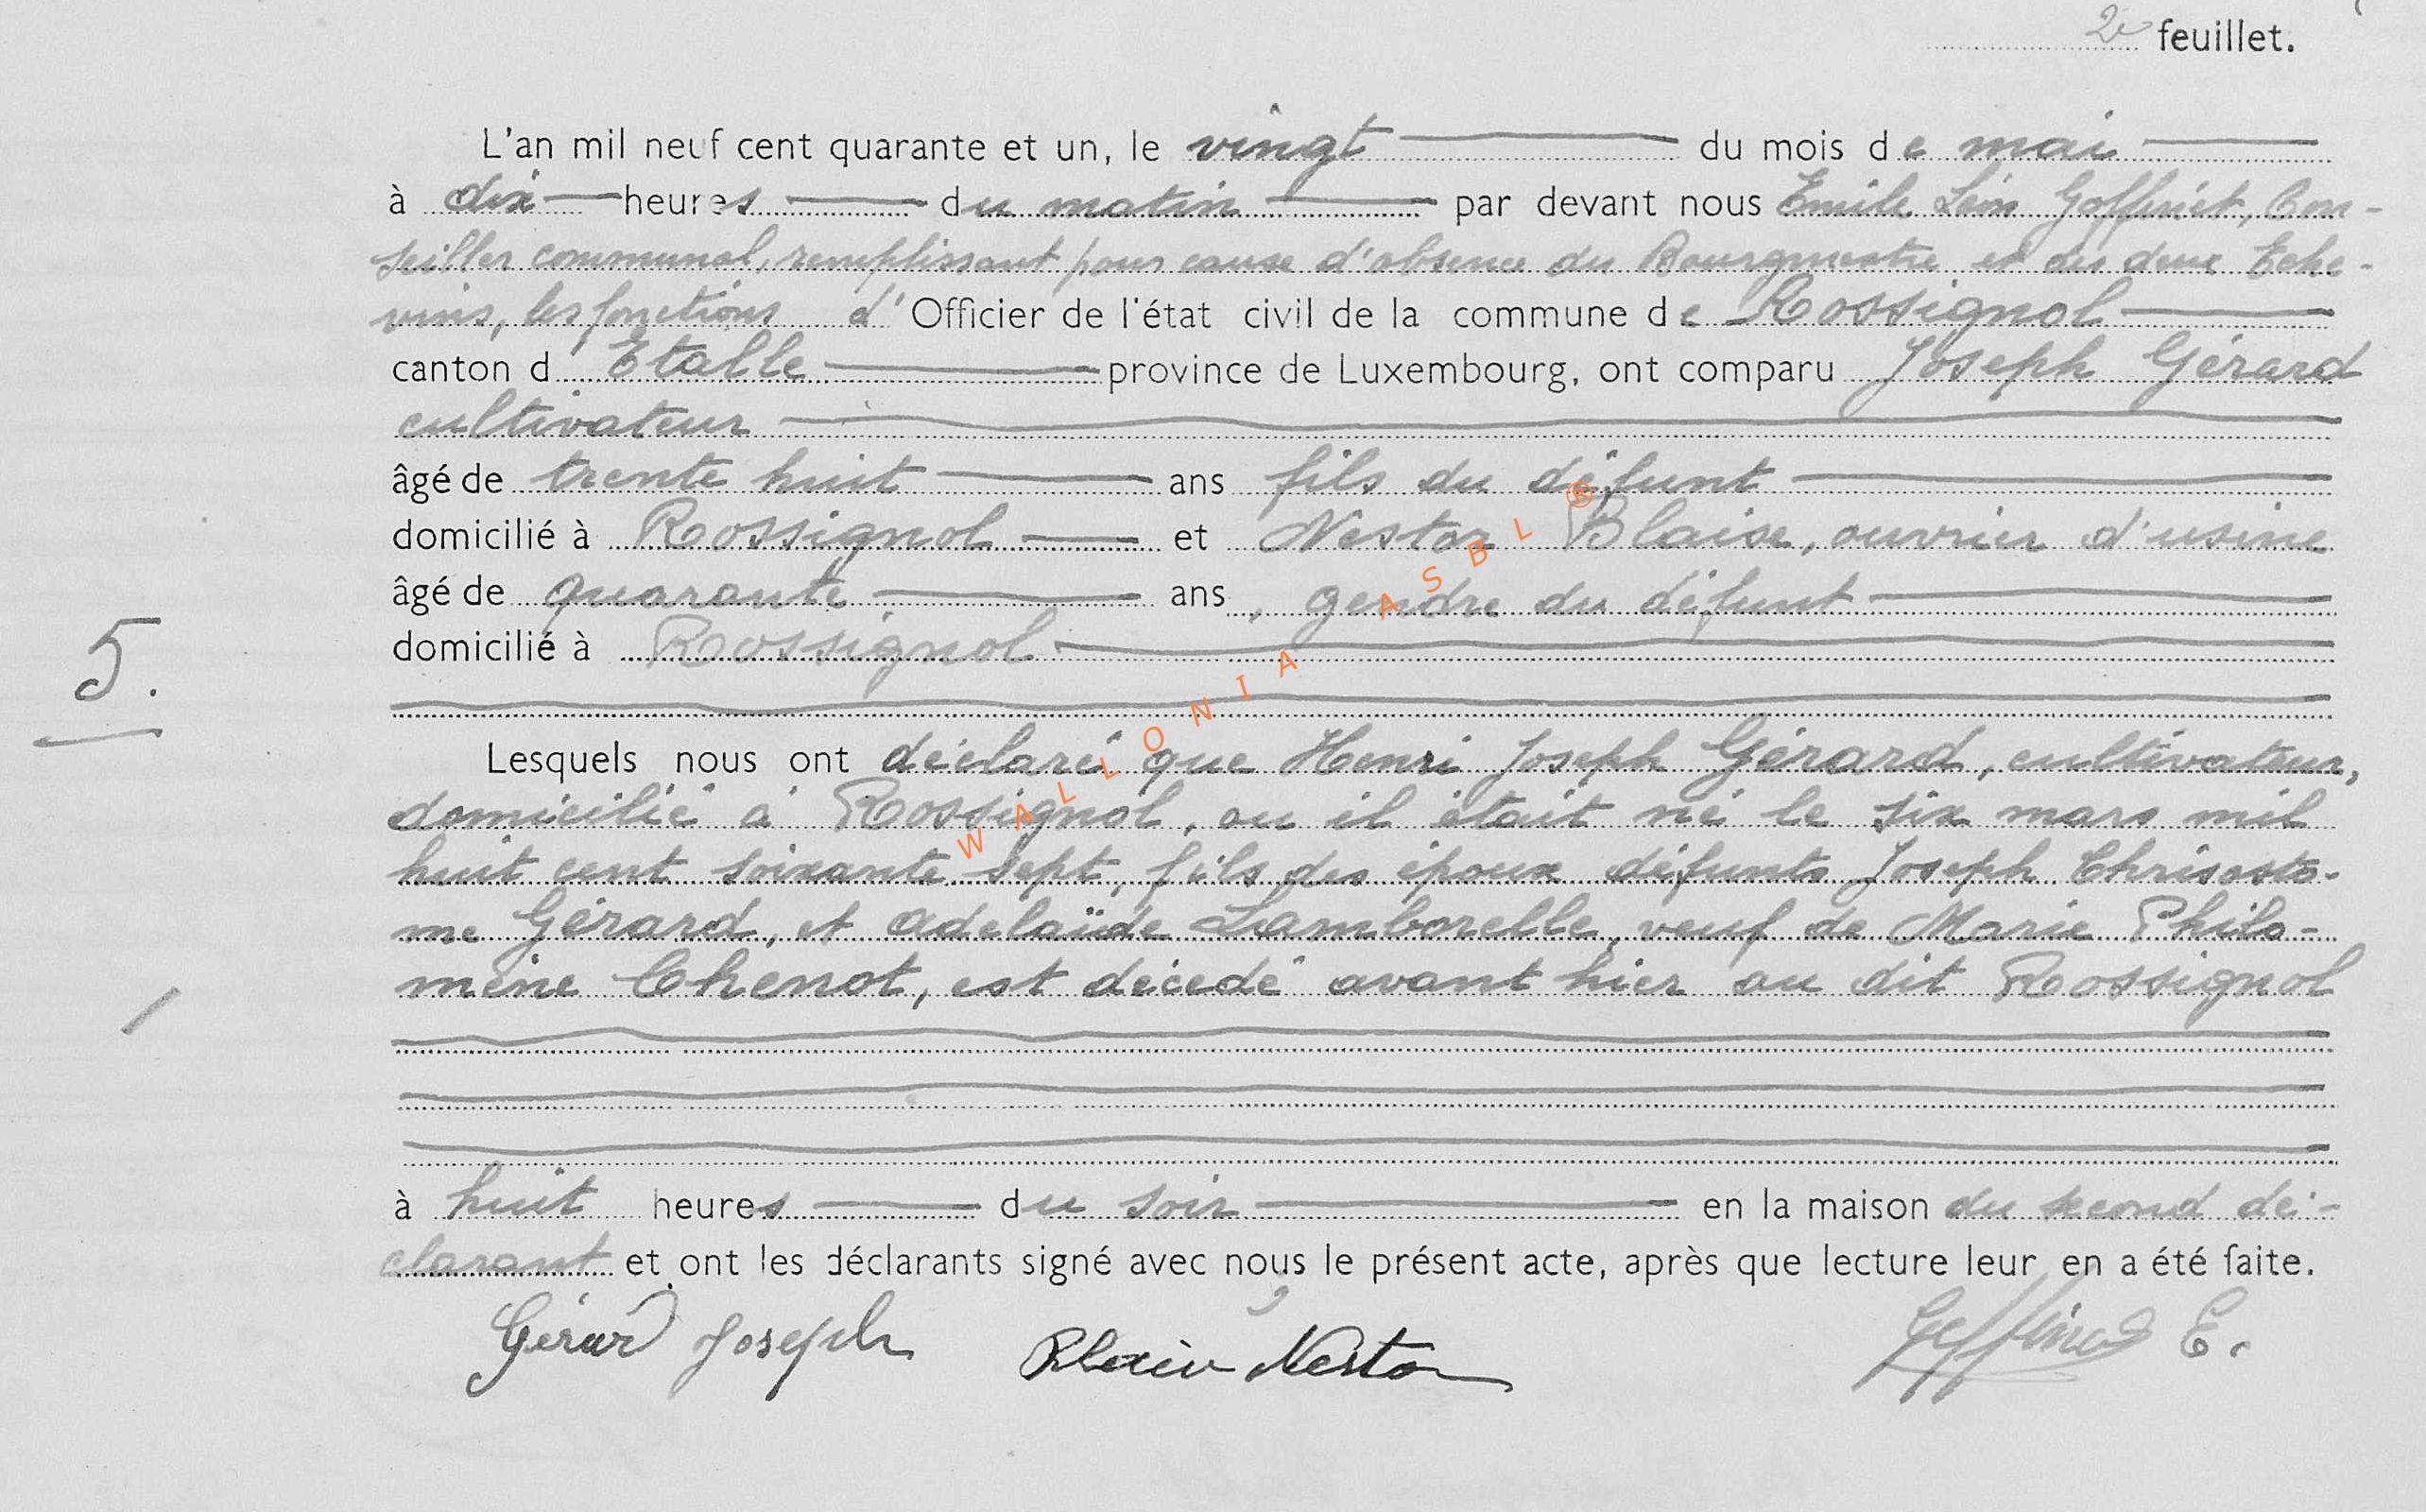 2e feuillet.
L'an mil neuf cent quarante et un, le vingt du mois de mai
à dix heures du matin par devant nous Emile Léon Goffinet, Con-
seiller communal, remplissant pour cause d'absence du Bourgmestre et des deux Eche-
vins, les fonctions d'Officier de l'état civil de la commune de Rossignol
canton d'Etalle province de Luxembourg, ont comparu Joseph Gérard
cultivateur
âgé de trente huit ans fils du défunt
domicilié à Rossignol et Nestor Blaise, ouvrier d'usine
âgé de quarante ans, gendre du défunt
domicilié à Rossignol
5.
Lesquels nous ont déclaré que Henri Joseph Gérard, cultivateur,
domicilié à Rossignol, ou il était né le six mars mil
huit cent soixante sept, fils des époux défunts Joseph Chrisosto-
me Gérard, et Adelaïde Lamborelle, veuf de Marie Philo-
mène Chenot, est décédé avant hier au dit Rossignol
à huit heures du soir en la maison du second dé-
clarant et ont les déclarants signé avec nous le présent acte, après que lecture leur en a été faite.
Gérard Joseph Blaise Nestor Goffinet E.
WALLONIA ASBL ®